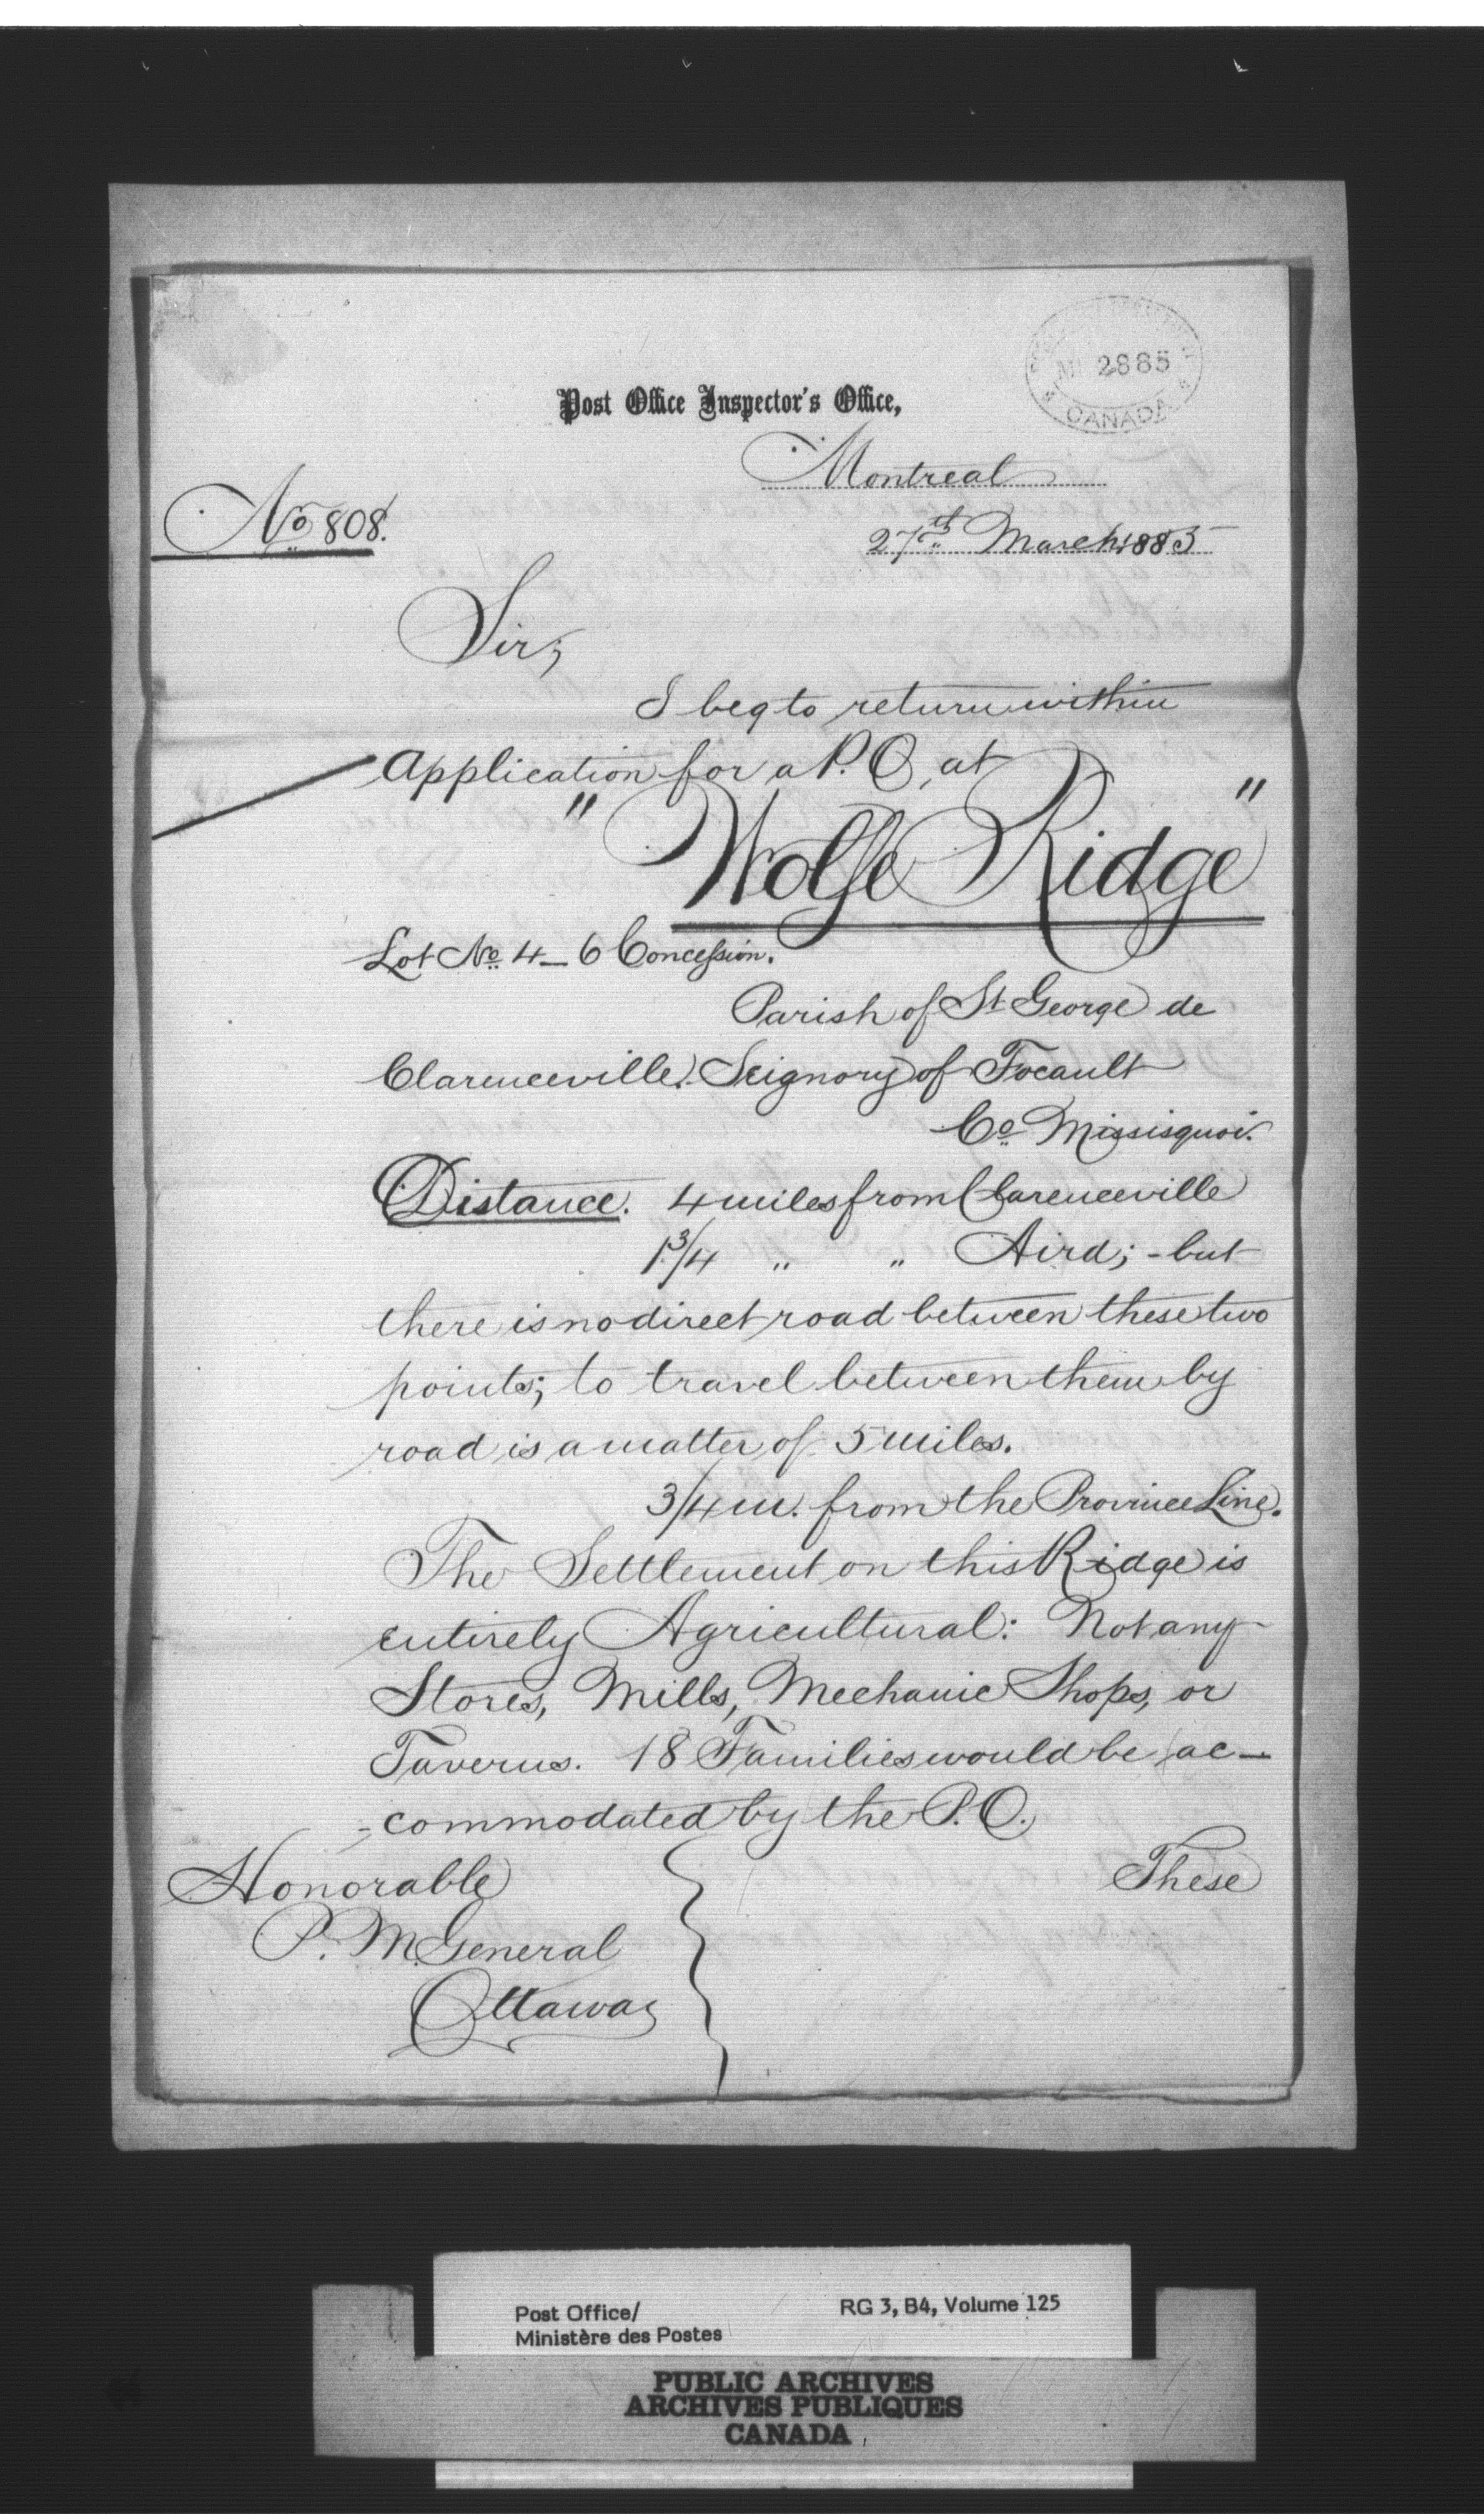 2885
CANADA
Post Office Inspector's Office,
Montreal
No 808.
27th March 1885
Sir;
I beg to return within
Application for a P.O. at
"Wolfe Ridge"
Lot No 4 - 6 Concession.
Parish of St George de
Clarenceville. Seignory of Focault
Co Missisquoi.
Distance. 4 miles from Clarenceville
1 3/4 " " Aird; - but
there is no direct road between these two
points; to travel between them by
road is a matter of 5 miles.
3/4 m. from the Province Line.
The Settlement on this Ridge is
entirely Agricultural: Not any
Stores, Mills, Mechanic Shops, or
Taverns. 18 Families would be ac-
-commodated by the P.O.
These
Honorable
P. M. General
Ottawa
Post Office/
Ministère des Postes
RG 3, B4, Volume 125
PUBLIC ARCHIVES
ARCHIVES PUBLIQUES
CANADA